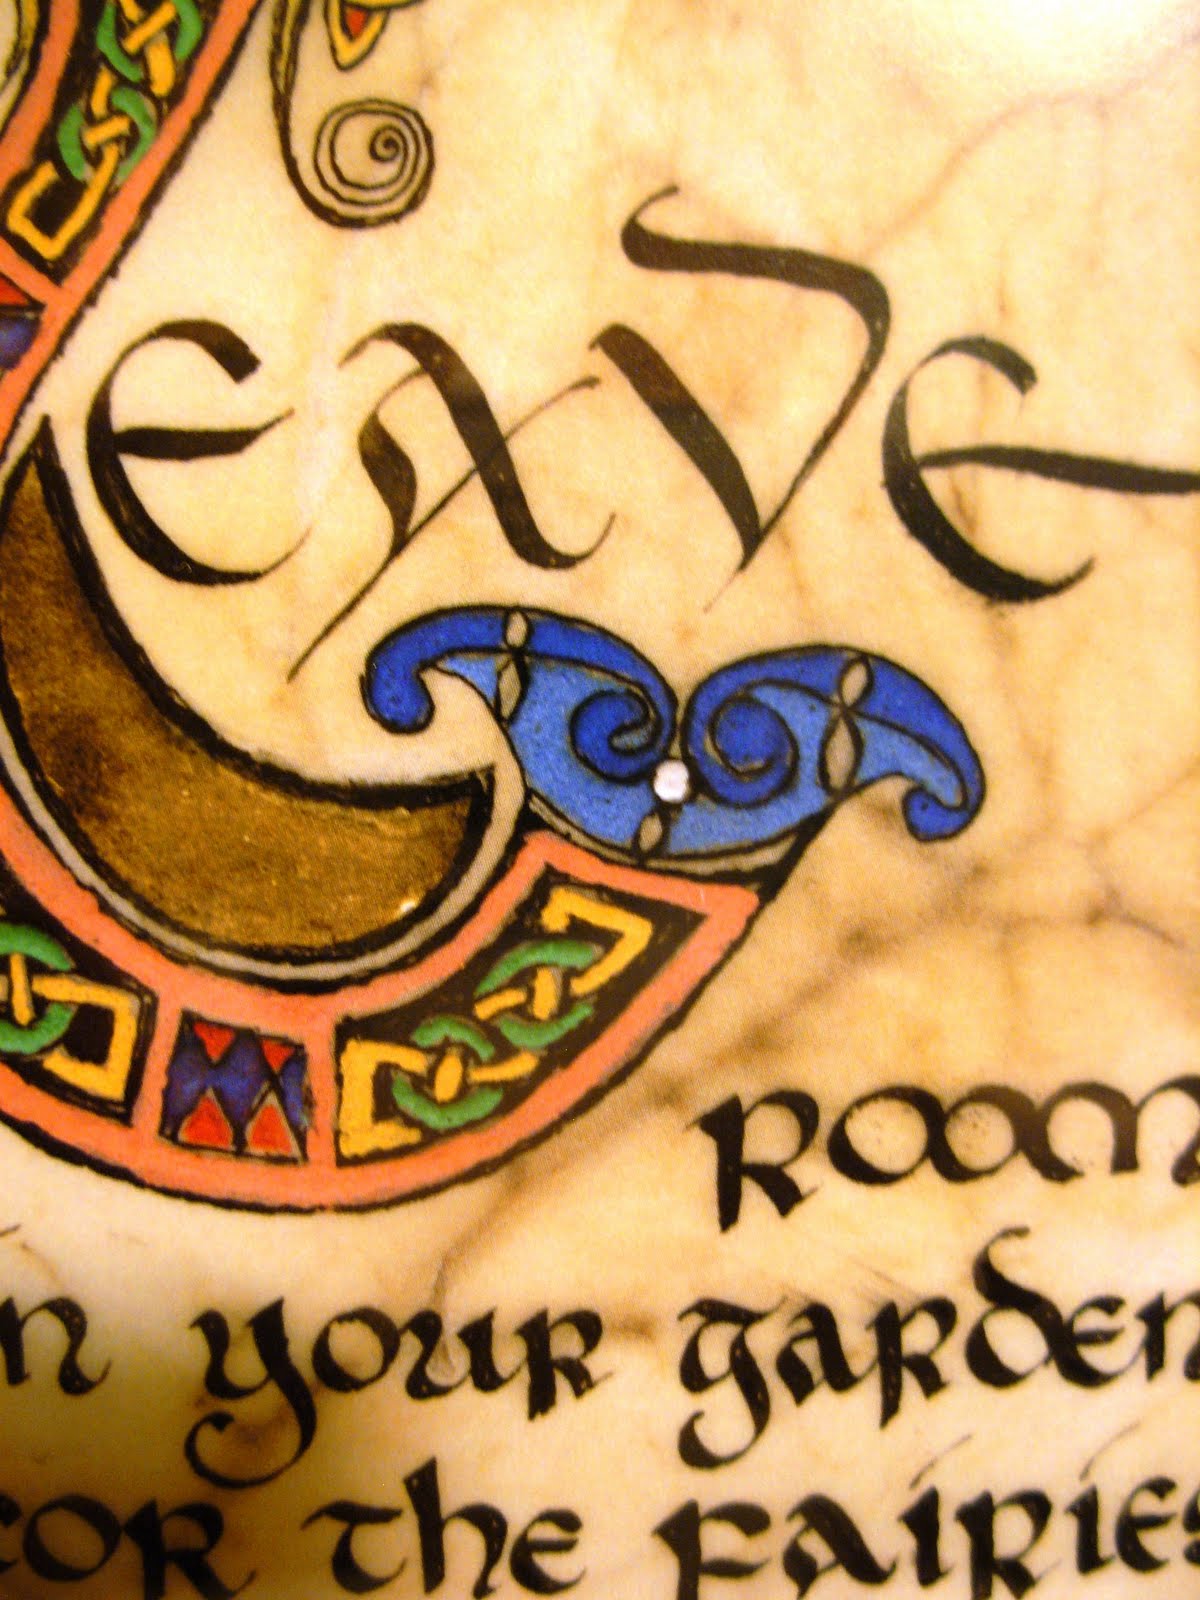 Leave
room
n your garden
for the fairies